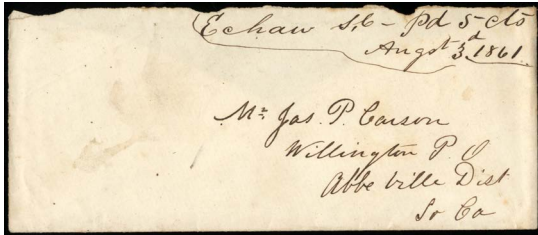 Echaw S,C - Pd 5 cts
Augst 3d 1861
Mr. Jas. P. Carson
Willington P. O
Abbe ville Dist
So Ca